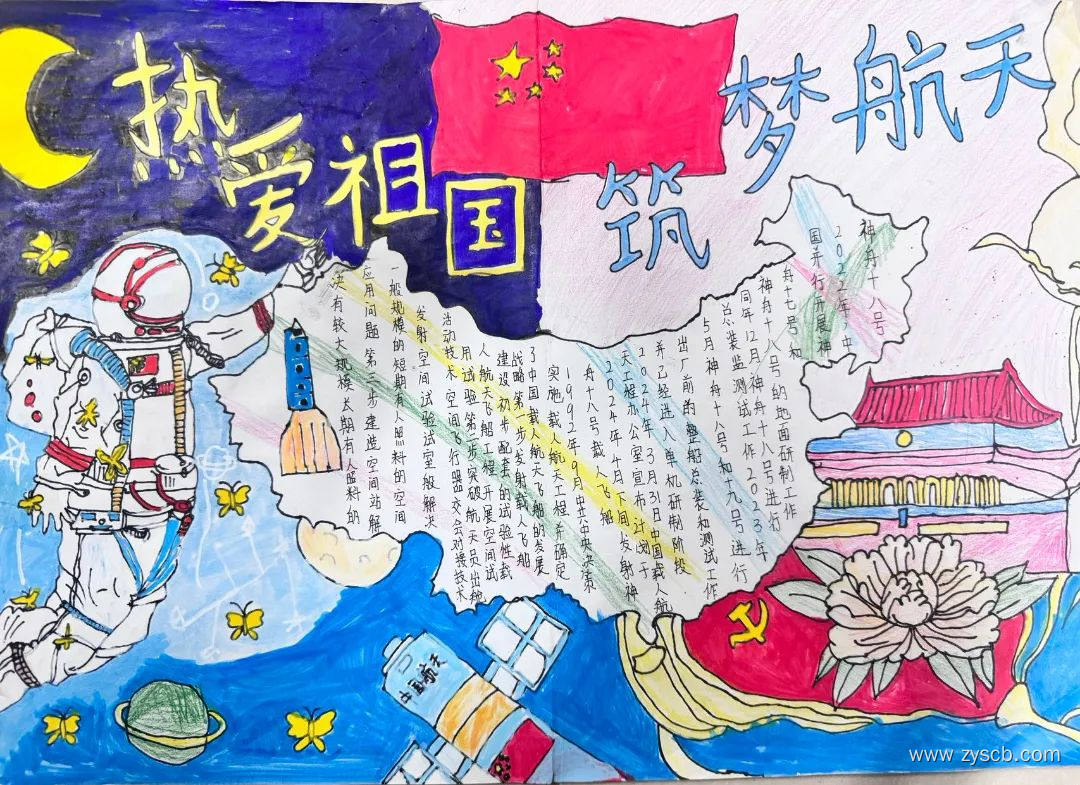 热爱祖国
筑梦航天
神舟十八号
2022年,中
国并行开展神
舟十七号和
神舟十八号的地面研制工作
同年12月,神舟十八号进行
总装监测试工作2023年
5月神舟十八号和十九号进行
出厂前的整船总装和测试工作
并已经进入单机研制阶投
2024年3月31日中国载人航
天工程办公室宣布计划于
2024年4月下间发射神
舟十八号载人飞船
1992年9月中共中央决策
实施载人航天工程并确定
了中国载人航天飞船的发展
战略第一步发射载人飞船
建设初步配套的试验性载
人航天飞船工程开展空间试
用试验第二步突破航天员出舱
活动技术空间飞行器交会对接技术
发射空间试验试室般解决
一般规模的短期有人照料的空间
应用问题第三步建造空间站解
决有较大规模长期有人监料的
中国航天
www.zyscb.com